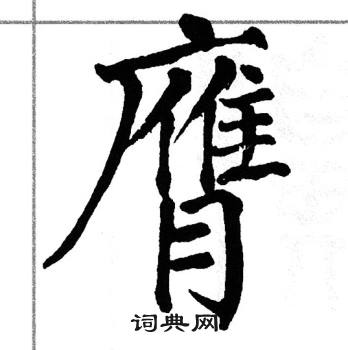 膺
词典网